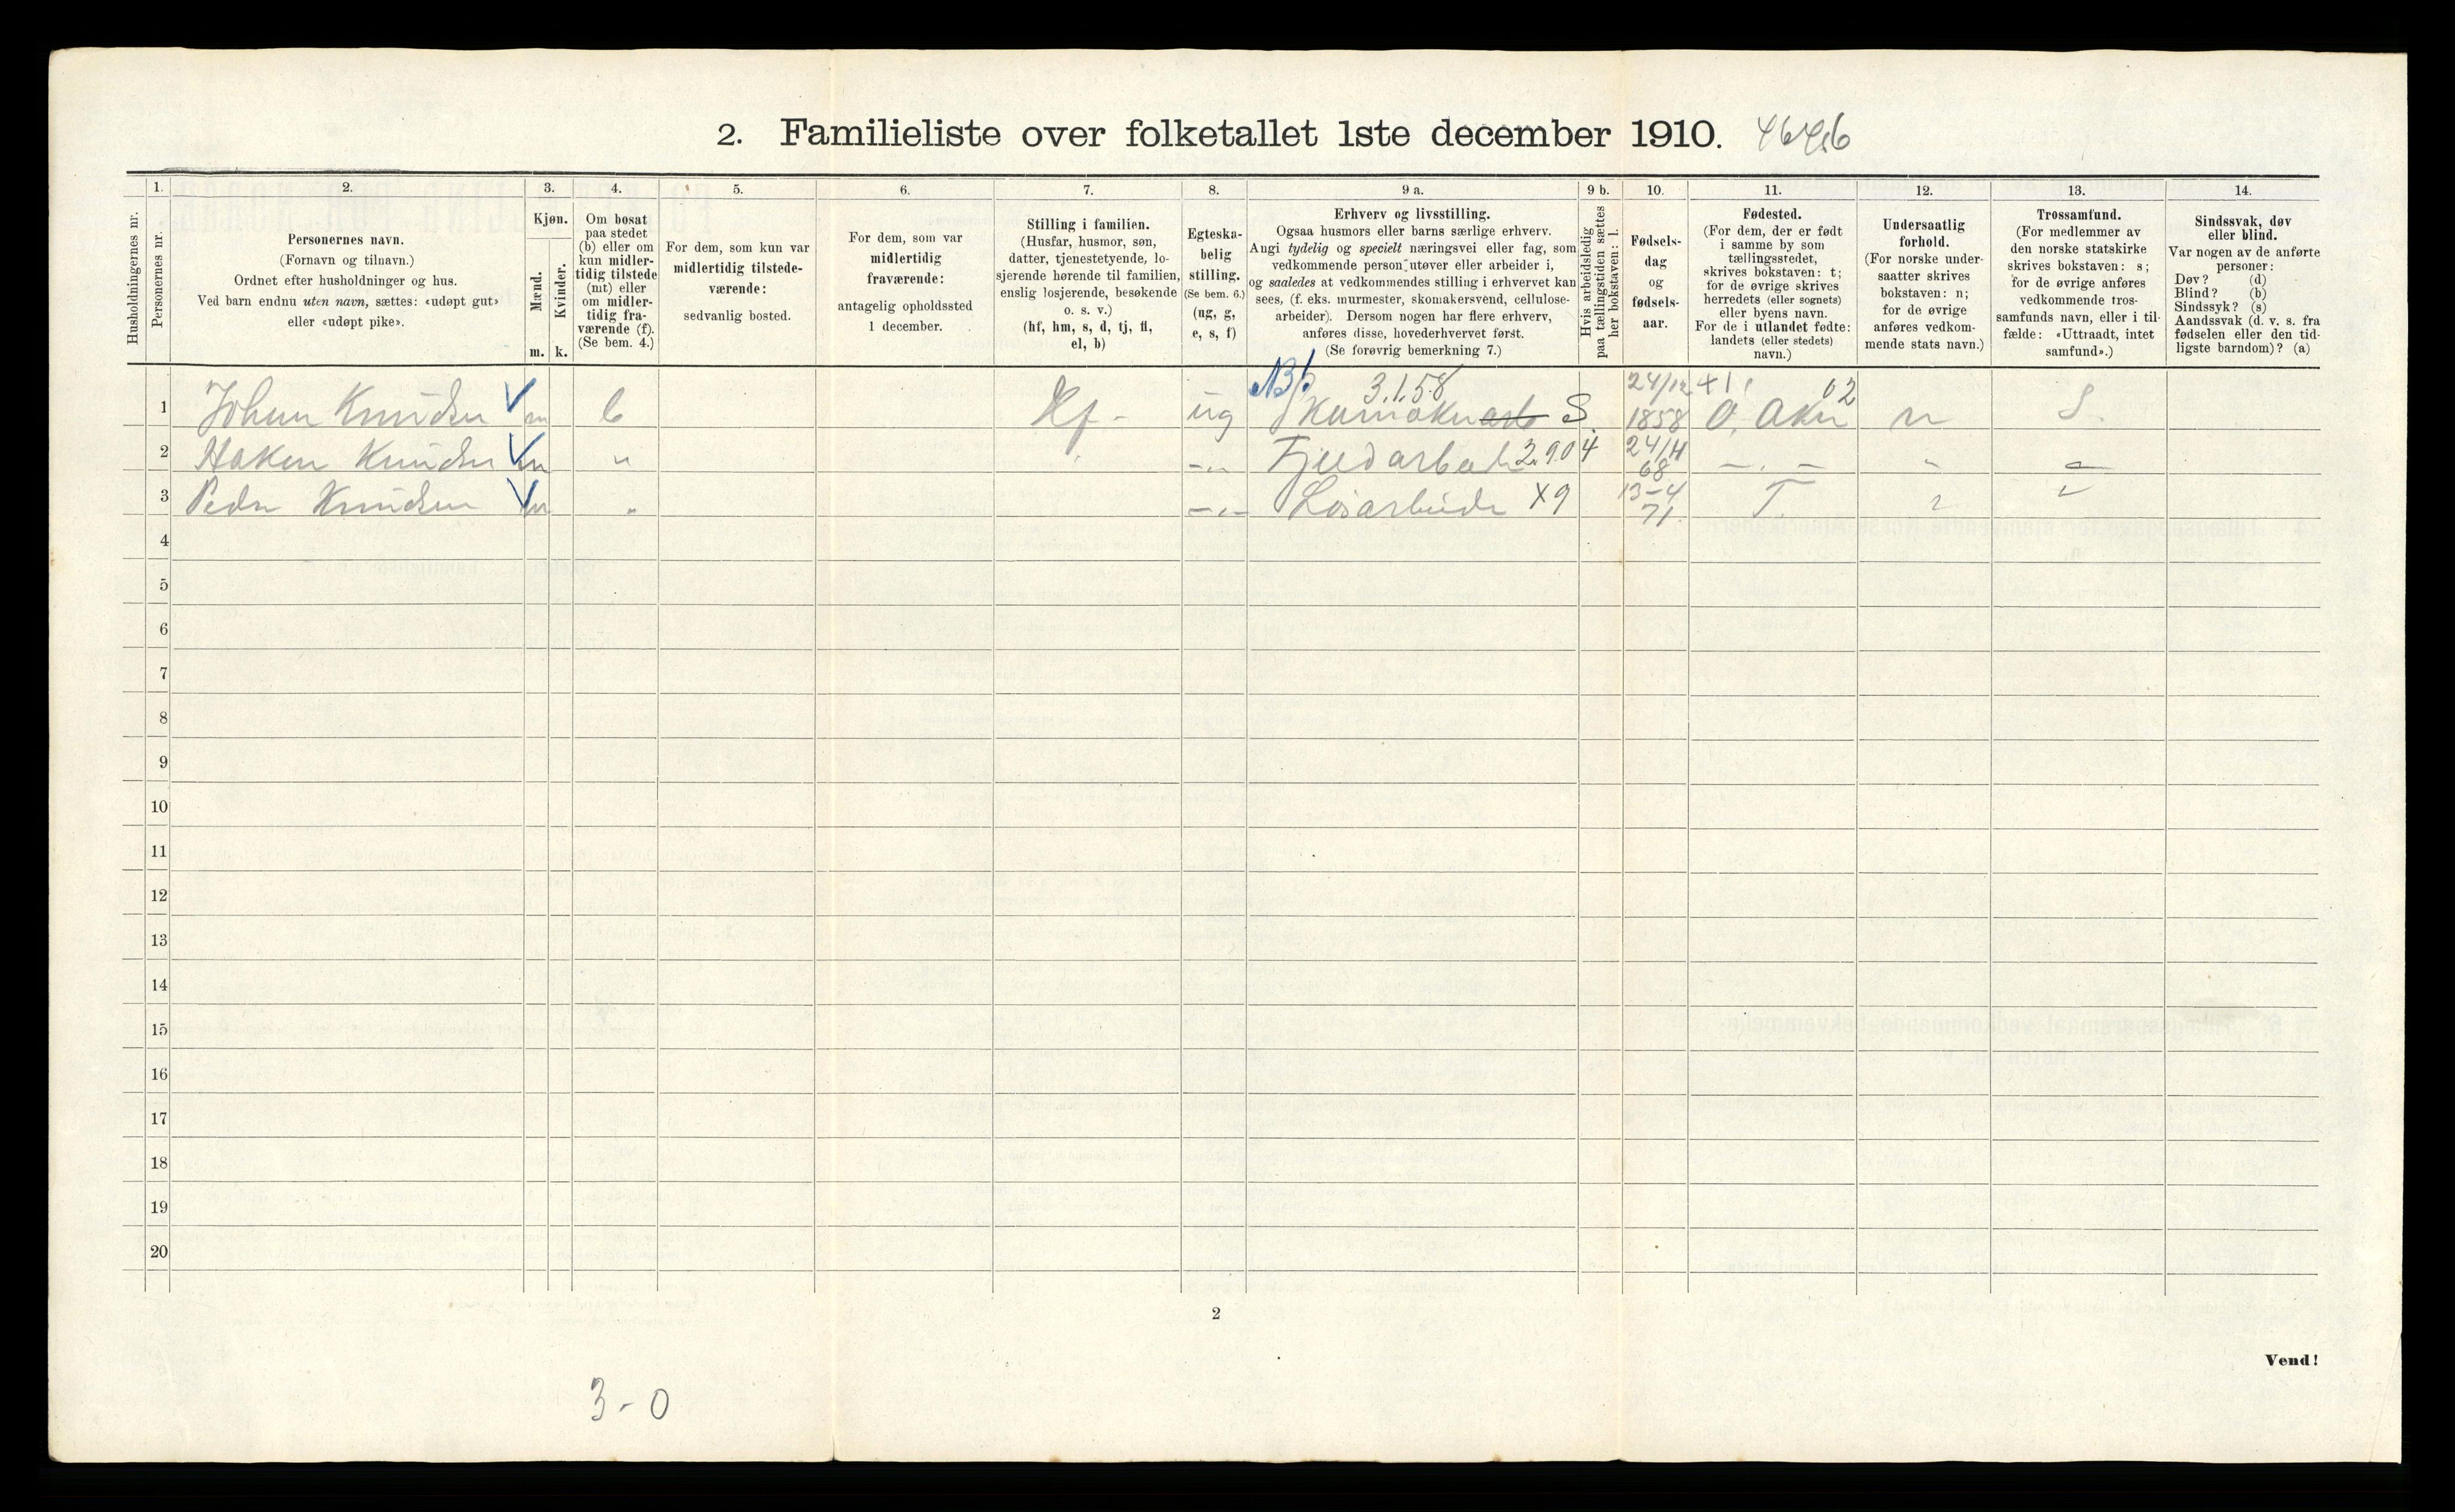 2. Familieliste over folketallet 1ste december 1910.
1. 2. 3. 4. 5. 6. 7. 8. 9 a. 9 b. 10. 11. 12. 13. 14.
Husholdningernes nr.
Personernes nr.
Personernes navn.
(Fornavn og tilnavn.)
Ordnet efter husholdninger og hus.
Ved barn endnu uten navn, sættes: «udøpt gut»
eller «udøpt pike».
Kjøn.
Mænd.
Kvinder.
m. k.
Om bosat
paa stedet
(b) eller om
kun midler-
tidig tilstede
(mt) eller
om midler-
tidig fra-
værende (f).
(Se bem. 4.)
For dem, som kun var
midlertidig tilstede-
værende:
sedvanlig bosted.
For dem, som var
midlertidig
fraværende:
antagelig opholdssted
1 december.
Stilling i familien.
(Husfar, husmor, søn,
datter, tjenestetyende, lo-
sjerende hørende til familien,
enslig losjerende, besøkende
o. s. v.)
(hf, hm, s, d, tj, fl,
el, b)
Egteska-
belig
stilling.
(Se bem. 6.)
(ug, g,
e, s, f)
Erhverv og livsstilling.
Ogsaa husmors eller barns særlige erhverv.
Angi tydelig og specielt næringsvei eller fag, som
vedkommende person utøver eller arbeider i,
og saaledes at vedkommendes stilling i erhvervet kan
sees, (f. eks. murmester, skomakersvend, cellulose-
arbeider). Dersom nogen har flere erhverv,
anføres disse, hovederhvervet først.
(Se forøvrig bemerkning 7.)
Hvis arbeidsledig
paa tællingstiden sættes
her bokstaven: l.
Fødsels-
dag
og
fødsels-
aar.
Fødested.
(For dem, der er født
i samme by som
tællingsstedet,
skrives bokstaven: t;
for de øvrige skrives
herredets (eller sognets)
eller byens navn.
For de i utlandet fødte:
landets (eller stedets)
navn.)
Undersaatlig
forhold.
(For norske under-
saatter skrives
bokstaven: n;
for de øvrige
anføres vedkom-
mende stats navn.)
Trossamfund.
(For medlemmer av
den norske statskirke
skrives bokstaven: s;
for de øvrige anføres
vedkommende tros-
samfunds navn, eller i til-
fælde: «Uttraadt, intet
samfund».)
Sindssvak, døv
eller blind.
Var nogen av de anførte
personer:
Døv? (d)
Blind? (b)
Sindssyk? (s)
Aandssvak (d. v. s. fra
fødselen eller den tid-
ligste barndom)? (a)
3.1.58 24/12 02
1 Johan Knudsen m b Hf - ug S 1858 Ø. Aker n S.
2 Haken Knudsen m " -"- 3.904 24/11 68 -"- " "
3 Peder Knudsen m " -"- Løsarbeide X9 13-4 71 T.
4
5
6
7
8
9
10
11
12
13
14
15
16
17
18
19
20
2
Vend!
3-0